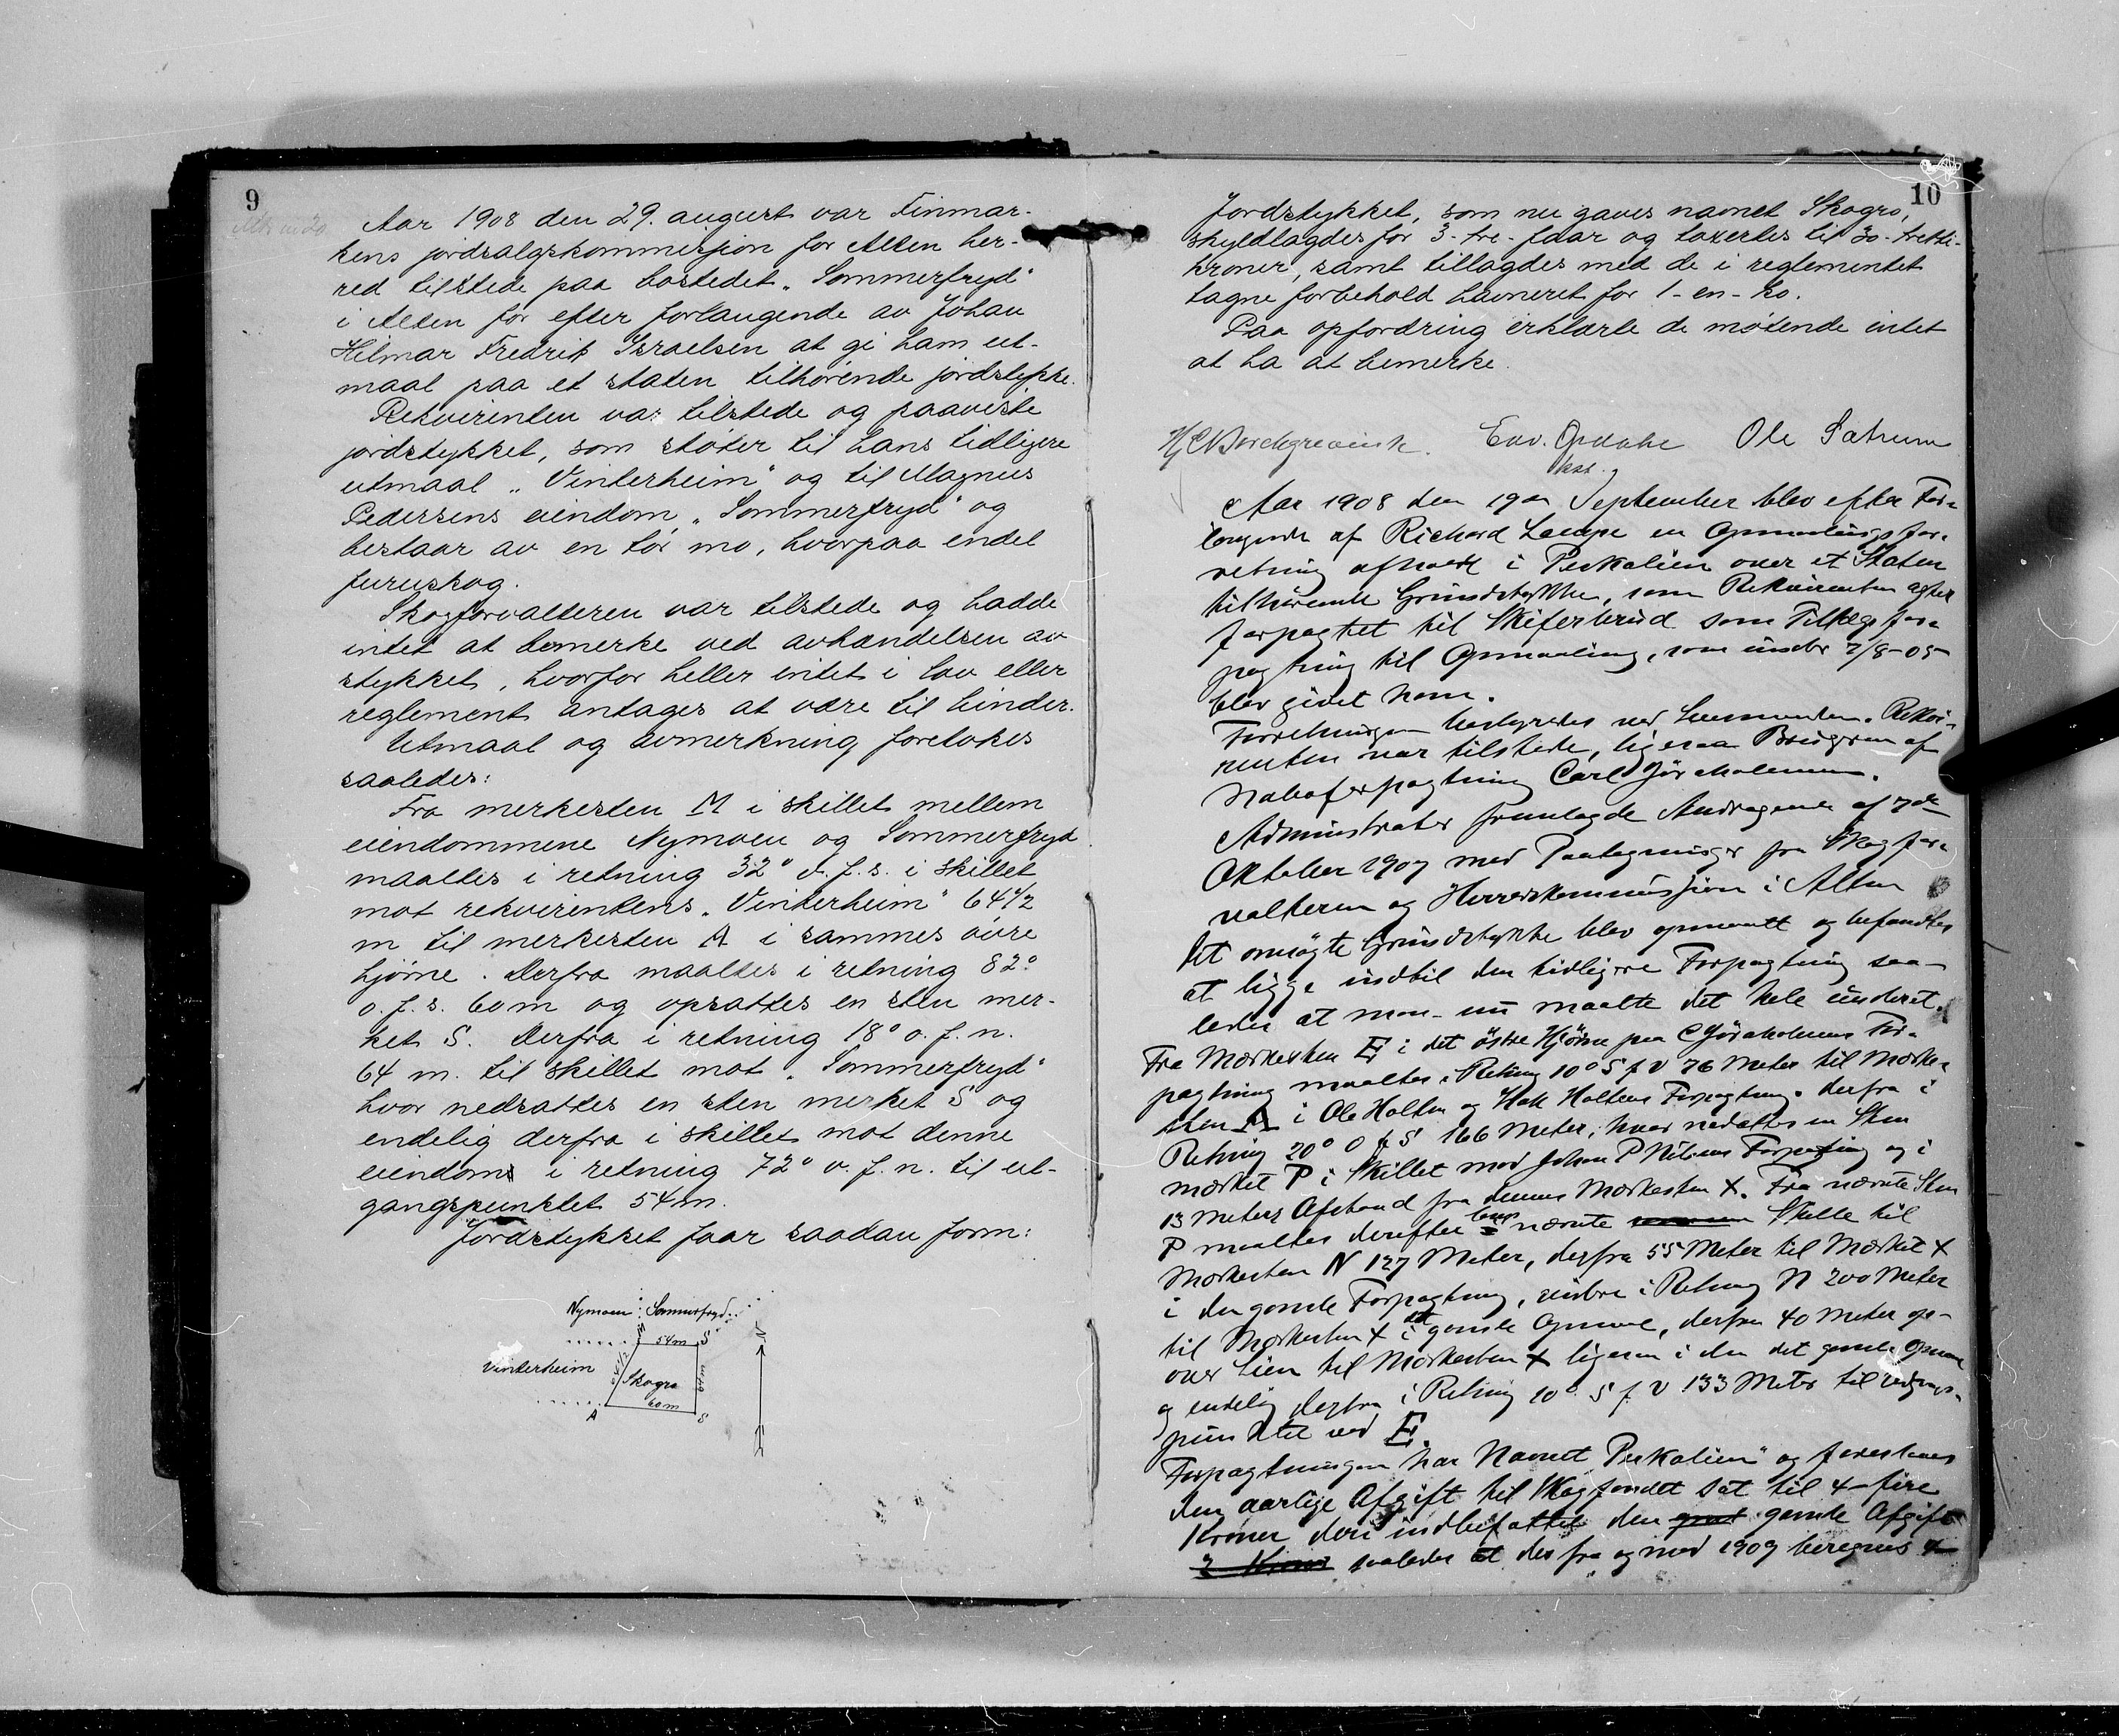 9
Aar 1908 den 29. august var Finmar-
kens jordsalgskommisjon for Alten her-
red tilstede paa bostedet „Sommerfryd“
i Alten for efter forlangende av Johan
Hilmar Fredrik Israelsen at gi ham ut-
maal paa et staten tilhørende jordstykke.
Rekvirenten var tilstede og paaviste
jordstykket, som støter til hans tidligere
utmaal „Vinterheim“ og til Magnus
Pedersens eiendom „Sommerfryd“ og
bestaar av en tør mo, hvorpaa endel
furuskog.
Skogforvalteren var tilstede og hadde
intet at bemerke ved avhændelsen av
stykket, hvorfor heller intet i lov eller
reglement antages at være til hinder.
Utmaal og avmerkning foretokes
saaledes:
Fra merkesten M i skillet mellem
eiendommene Nymoen og Sommerfryd
maaltes i retning 32° v. f. s. i skillet
mot rekvirentens „Vinterheim“ 64 1/2
m til merkesten A i sammes øvre
hjørne. Derfra maaltes i retning 82°
o. f. s. 60 m og opsattes en sten mer-
ket S. Derfra i retning 18° o. f. n.
64 m. til skillet mot „Sommerfryd“
hvor nedsattes en sten merket S og
endelig derfra i skillet mot denne
eiendom i retning 72° v. f. n. til ut-
gangspunktet 54 m.
Jordstykket faar saadan form:
Nymoen Sommerfryd
M 54 m S
Vinterheim
64 1/2
Skogro
64 m
60 m
A S
N
10
Jordstykket, som nu gaves navnet Skogro,
skyldlagdes for 3 - tre - øre og taxertes til 30 - tretti -
kroner, samt tillagdes med de i reglementet
tagne forbehold havneret for 1 - en - ko.
Paa opfordring erklærte de møtende intet
at ha at bemerke.
H C Borchgrevink. Edv. Opdahl Ole Sætrum
Aar 1908 den 19de September blev efter For-
langende af Richard Lampe en Opmaalingsfor-
retning afholdt i Peskalien over et Staten
tilhørende Grundstykke, som Rekvirenten agter
forpagtet til Skiferbrud som Tillægsfor-
pagtning til Opmaaling, som under 7/8-05
blev givet ham.
Forretningen bestyredes ved Lensmanden. Rekvi-
renten var tilstede, ligesaa Brugeren af
Naboforpagtning Carl Jøraholmen.
Administrator fremlagde Andragende af 7de
Oktober 1907 med Paategninger fra Skogfor-
valteren og Herredskommissjon i Alten
Det omsøgte Grundstykke blev opmaalt og befandtes
at ligge indtil den tidligere Forpagtning saa-
ledes at man nu maalte det hele underet.
Fra Mærkesten E i det østre Hjørne paa C Jøraholmens For-
pagtning maaltes i Retning 10° S f V 76 Meter til Mærke-
sten A i Ole Holten og Hall Holtens Forpagtning. Derfra i
Retning 20° O f S 166 Meter, hvor nedsattes en Sten
mærket P i Skillet mod Johan P Nilsens Forpagtning og i
13 Meters Afstand fra dennes Mærkesten X. Fra nævnte Sten
P maaltes derefter langs nævnte Skille til
Mærkesten N 127 Meter, derfra 55 Meter til Mærket X
i den gamle Forpagtning, videre i Retning N 200 Meter
til Mærkesten X i det gamle Opmaal, derfra 40 Meter op-
over Lien til Mærkesten X ligesaa i det gamle Opmaal
og endelig derfra i Retning 10° S f V 133 Meter til Udgangs-
punktet ved E.
Forpagtningen har Navnet „Peskalien“ og forestaaes
den aarlige Afgift til Skogfondet sat til 4 - fire
Kroner deri indbefattet den gamle Afgift
saaledes at der fra og med 1909 beregnes